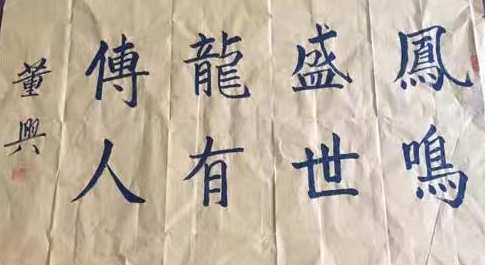 鳳鳴
盛世
龍有
傳人
董興